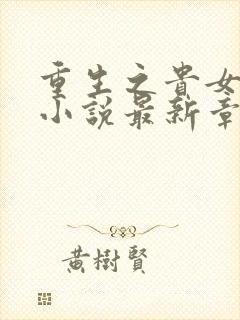 重生之貴女
小說最新章
黃樹賢